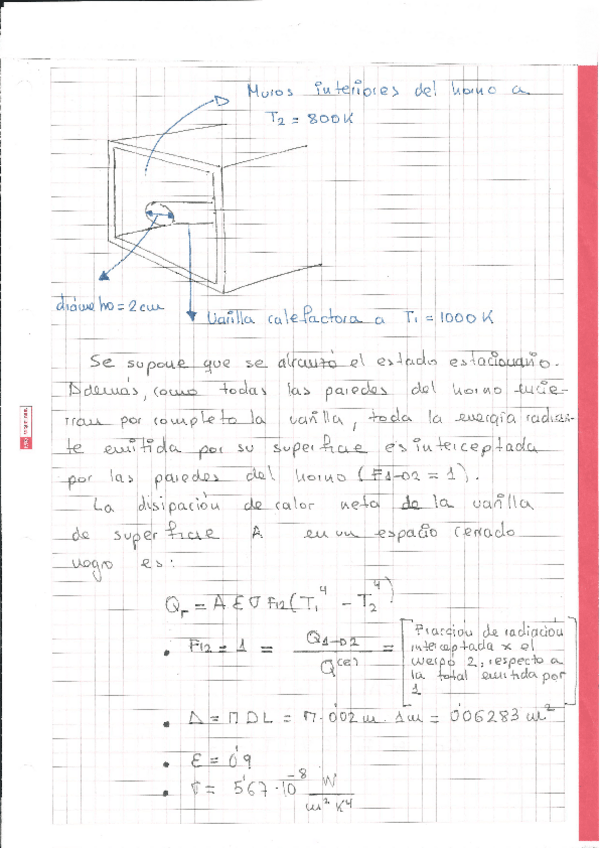 Muros interiores del horno a
T2 = 800K
diámetro = 2cm
Varilla calefactora a T1 = 1000 K
Se supone que se alcanzó el estado estacionario.
Además, como todas las paredes del horno encie-
rran por completo la varilla, toda la energía radian-
te emitida por su superficie es interceptada
por las paredes del horno (F1→2 = 1).
La disipación de calor neta de la varilla
de superficie A en un espacio cerrado
negro es:
Qr = A ε σ F12 (T1⁴ - T2⁴)
• F12 = 1 = Q1→2 / Q(e) = [Fracción de radiación
interceptada x el
cuerpo 2, respecto a
la total emitida por
1]
• A = π D L = π · 0'02 m · 1m = 0'06283 m²
• ε = 0'9
• σ = 5'67 · 10⁻⁸ W / m² K⁴